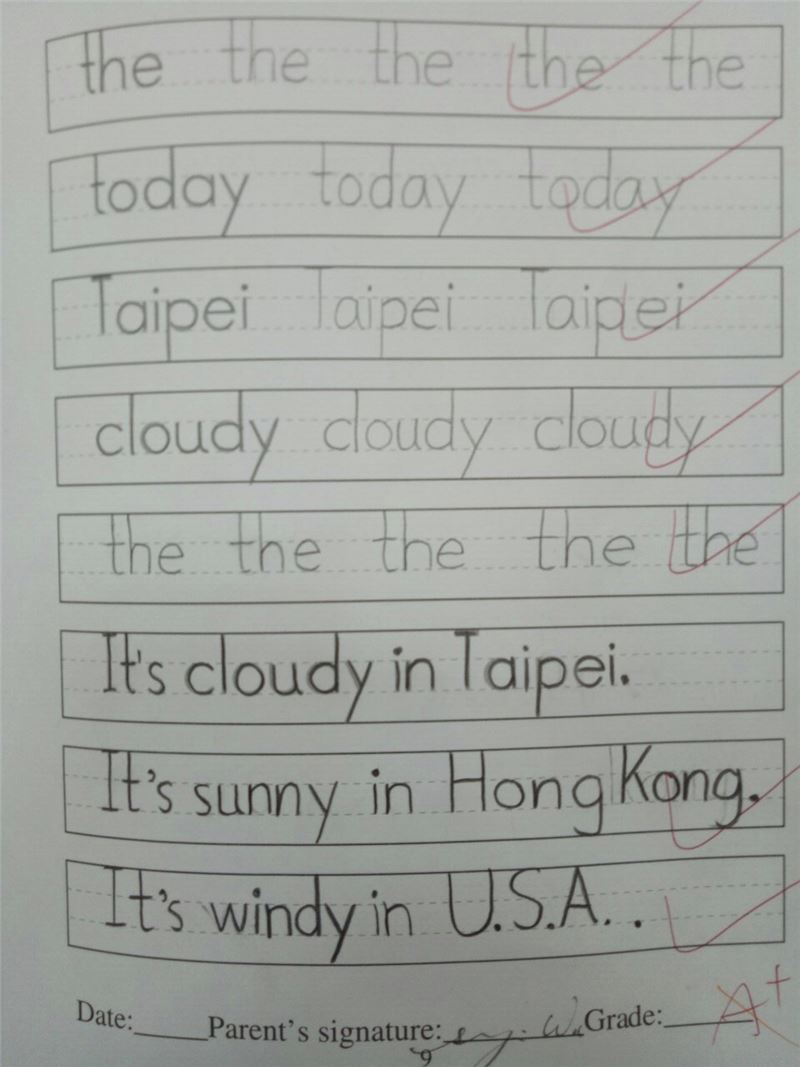 the the the the the
today today today
Taipei Taipei Taipei
cloudy cloudy cloudy
the the the the the
It's cloudy in Taipei.
It's sunny in Hong Kong.
It's windy in U.S.A. .
Date: Parent's signature: Grade: A+
9